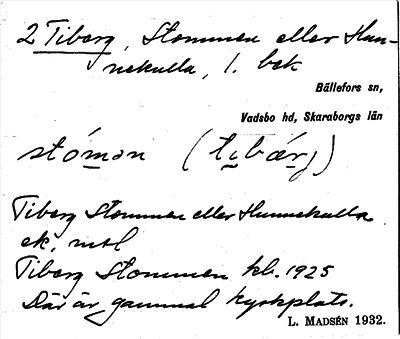 2 Tiberg, Stommen eller Hun-
nekulla, 1. bek
Bällefors sn,
Vadsbo hd, Skaraborgs län
stómən (tibǽrj)
Tiberg Stommen eller Hunnekulla
ek. mtl
Tiberg Stommen kb. 1925
Där är gammal kyrkplats.
L. MADSÉN 1932.